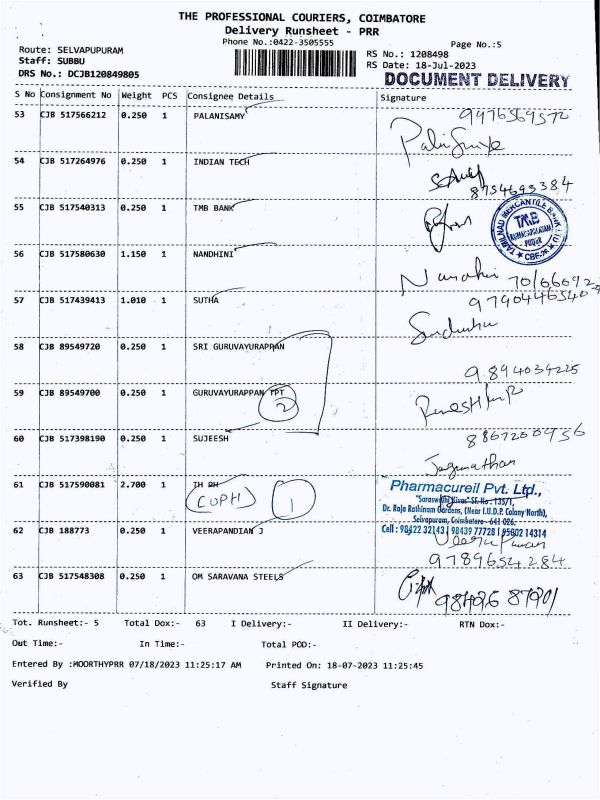 THE PROFESSIONAL COURIERS, COIMBATORE
Delivery Runsheet - PRR
Phone No.:0422-3505555
Page No.:5
Route: SELVAPUPURAM
Staff: SUBBU
DRS No.: DCJB120849805
RS No.: 1208498
RS Date: 18-Jul-2023
DOCUMENT DELIVERY
S No Consignment No Weight PCS Consignee Details Signature
53 CJB 517566212 0.250 1 PALANISAMY
54 CJB 517264976 0.250 1 INDIAN TECH
8754693384
55 CJB 517540313 0.250 1 TMB BANK
TAMILNAD MERCANTILE BANK LTD
TMB
CBE-26
56 CJB 517580630 1.150 1 NANDHINI
Nandhini
57 CJB 517439413 1.010 1 SUTHA
9790446540
58 CJB 89549720 0.250 1 SRI GURUVAYURAPPAN
9894034225
59 CJB 89549700 0.250 1 GURUVAYURAPPAN TPT
2
60 CJB 517398190 0.250 1 SUJEESH
8867200956
Jagunathan
61 CJB 517590081 2.700 1 TH PH
(UPH) 1
Pharmacureil Pvt. Ltd.,
"Saraswathi Nivas" SF. No : 135/1,
Dr. Raja Rathinam Gardens, (Near I.U.D.P. Colony North),
Selvapuram, Coimbatore - 641 026.
Cell : 98422 32143 | 98439 77728 | 95002 14314
62 CJB 188773 0.250 1 VEERAPANDIAN J
9789654284
63 CJB 517548308 0.250 1 OM SARAVANA STEELS
Tot. Runsheet:- 5 Total Dox:- 63 I Delivery:- II Delivery:- RTN Dox:-
Out Time:- In Time:- Total POD:-
Entered By :MOORTHYPRR 07/18/2023 11:25:17 AM Printed On: 18-07-2023 11:25:45
Verified By Staff Signature